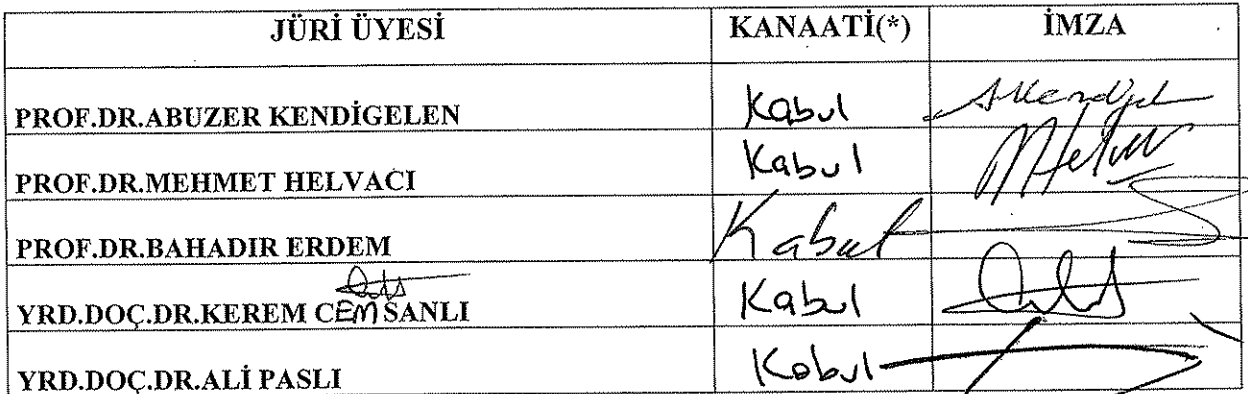 JÜRİ ÜYESİ KANAATİ(*) İMZA
PROF.DR.ABUZER KENDİGELEN Kabul AKendigel
PROF.DR.MEHMET HELVACI Kabul MHelvacı
PROF.DR.BAHADIR ERDEM Kabul
YRD.DOÇ.DR.KEREM CEM SANLI Kabul
YRD.DOÇ.DR.ALİ PASLI Kabul